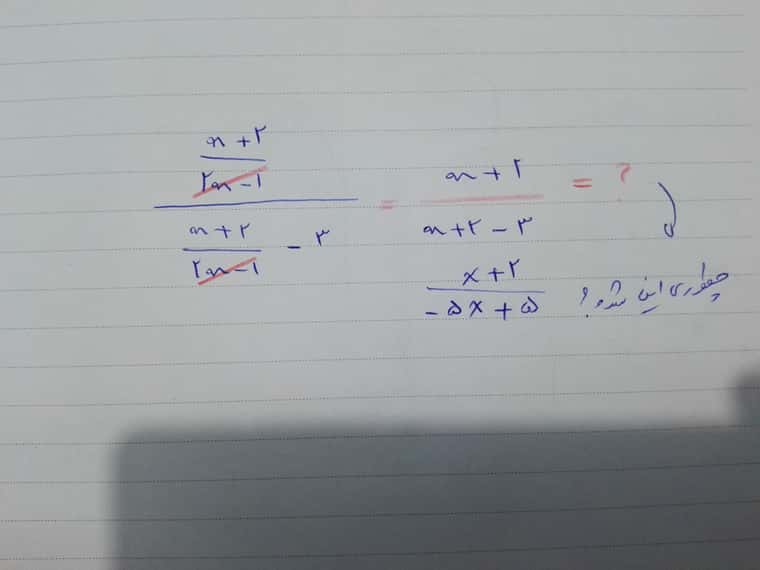 (x+۲)/(۲x-۱) / ((x+۲)/(۲x-۱) - ۳) = (x+۲)/(x+۲-۳) = ?
(x+۲)/(-۵x+۵) چطوری این شده؟